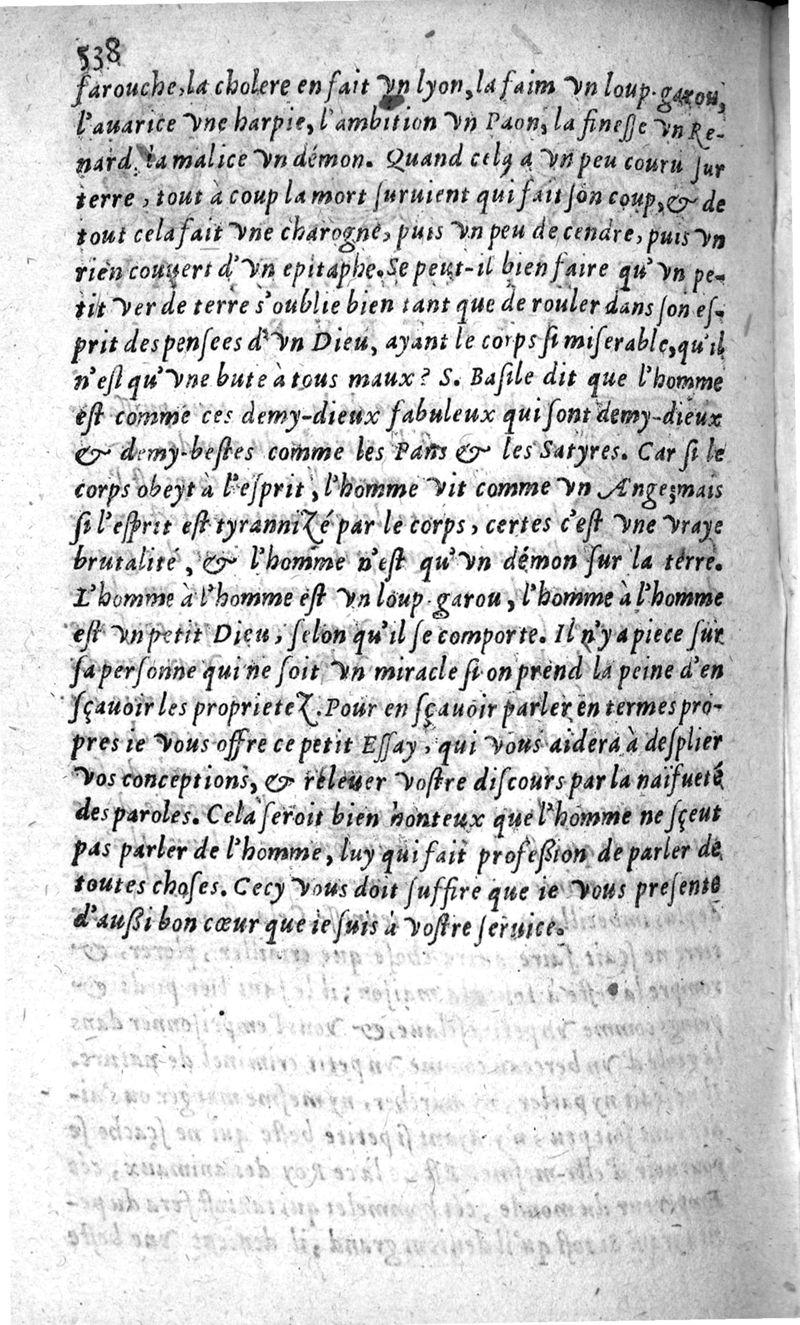 538
farouche, la cholere en fait vn lyon, la faim vn loup-garou,
l'auarice vne harpie, l'ambition vn Paon, la finesse vn Re-
nard, la malice vn démon. Quand cela a vn peu couru sur
terre, tout à coup la mort suruient qui fait son coup, & de
tout cela fait vne charogne, puis vn peu de cendre, puis vn
rien couuert d'vn epitaphe. Se peut-il bien faire qu'vn pe-
tit ver de terre s'oublie bien tant que de rouler dans son es-
prit des pensees d'vn Dieu, ayant le corps si miserable, qu'il
n'est qu'vne bute à tous maux? S. Basile dit que l'homme
est comme ces demy-dieux fabuleux qui sont demy-dieux
& demy-bestes comme les Pans & les Satyres. Car si le
corps obeyt à l'esprit, l'homme vit comme vn Ange; mais
si l'esprit est tyrannizé par le corps, certes c'est vne vraye
brutalité, & l'homme n'est qu'vn démon sur la terre.
L'homme à l'homme est vn loup-garou, l'homme à l'homme
est vn petit Dieu, selon qu'il se comporte. Il n'y a piece sur
sa personne qui ne soit vn miracle si on prend la peine d'en
sçauoir les proprietez. Pour en sçauoir parler en termes pro-
pres ie vous offre ce petit Essay, qui vous aidera à desplier
vos conceptions, & releuer vostre discours par la naïfueté
des paroles. Cela seroit bien honteux que l'homme ne sçeut
pas parler de l'homme, luy qui fait profession de parler de
toutes choses. Cecy vous doit suffire que ie vous presente
d'aussi bon cœur que ie suis à vostre seruice.